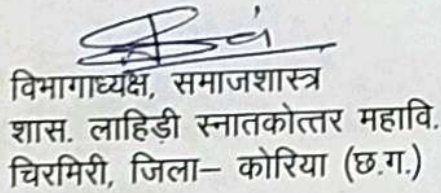 विभागाध्यक्ष, समाजशास्त्र
शास. लाहिड़ी स्नातकोत्तर महावि.
चिरमिरी, जिला– कोरिया (छ.ग.)